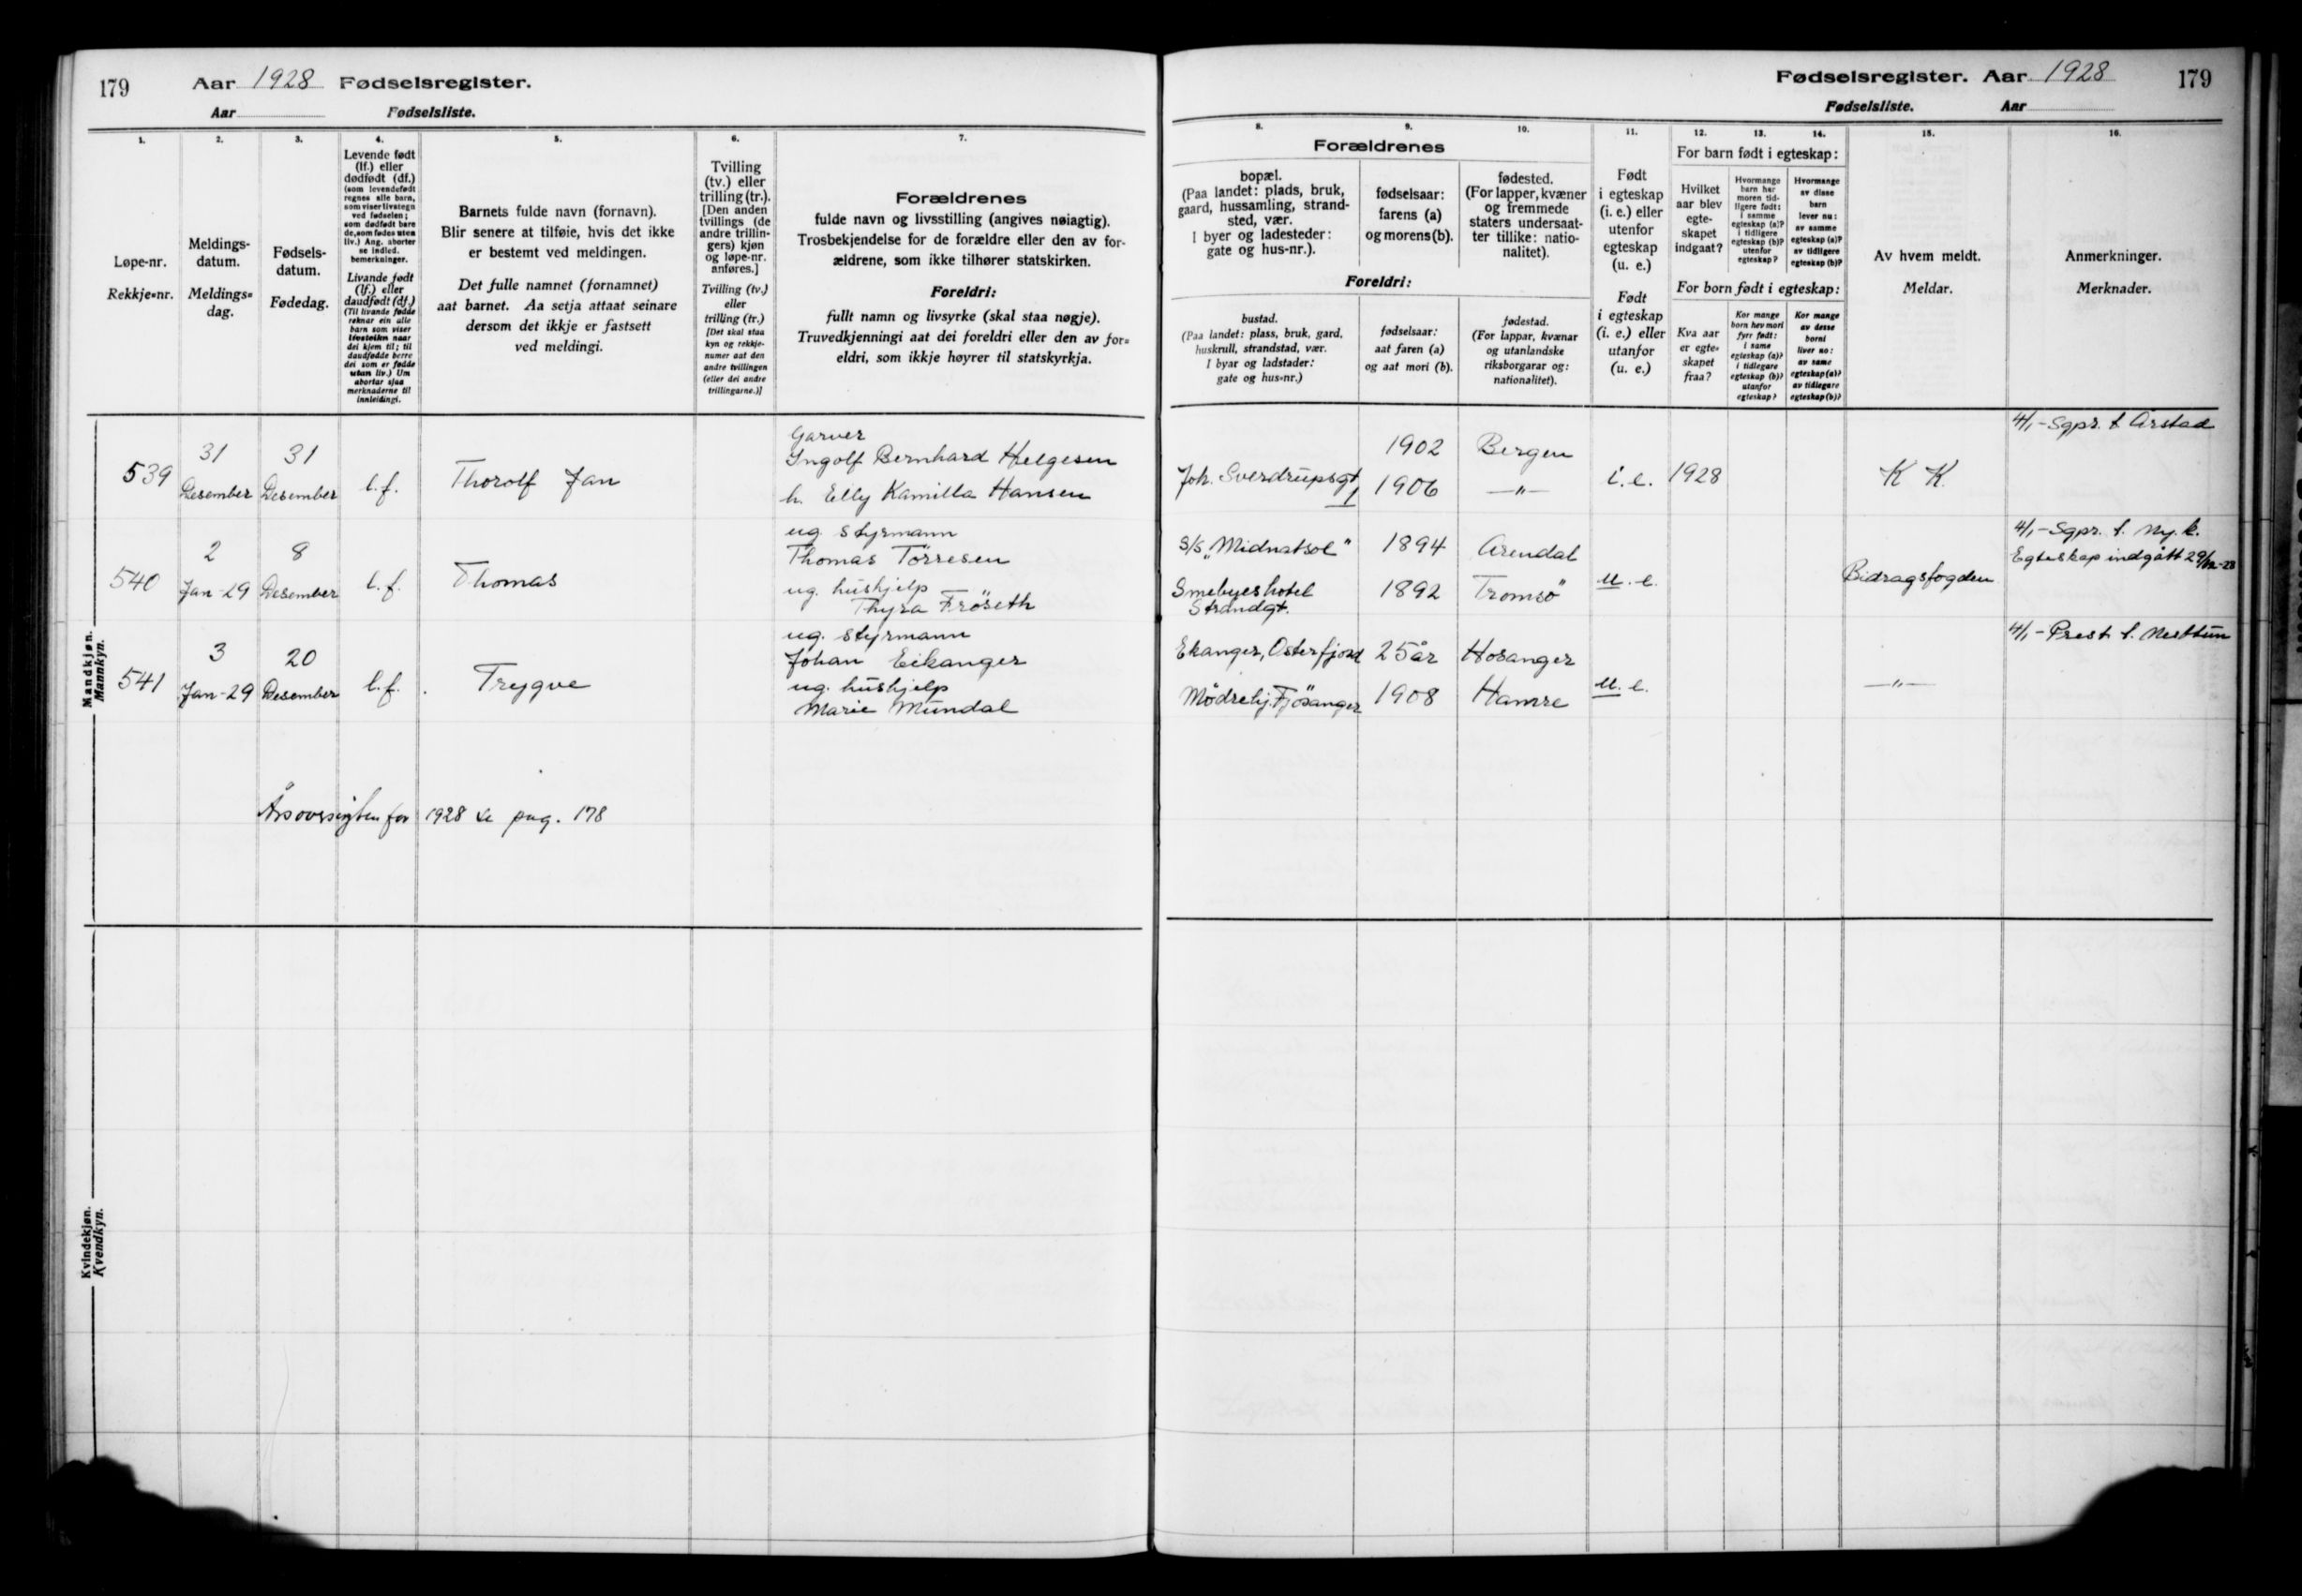 179 Aar 1928 Fødselsregister.
Aar Fødselsliste.
Fødselsregister. Aar 1928 179
Fødselsliste. Aar
1. 2. 3. 4. 5. 6. 7.
Løpe-nr.
Rekkje-nr.
Meldings-
datum.
Meldings-
dag.
Fødsels-
datum.
Fødedag.
Levende født
(lf.) eller
dødfødt (df.)
(som levendefødt
regnes alle barn,
som viser livstegn
ved fødselen;
som dødfødt bare
de, som fødes uten
liv.) Ang. aborter
se indled.
bemerkninger.
Livande født
(lf.) eller
daudfødt (df.)
(Til livande fødde
reknar ein alle
barn som viser
livsteikn naar
dei kjem til; til
daudfødde berre
dei som er fødde
utan liv.) Um
abortar sjaa
merknaderne til
innleidingi.
Barnets fulde navn (fornavn).
Blir senere at tilføie, hvis det ikke
er bestemt ved meldingen.
Det fulle namnet (fornamnet)
aat barnet. Aa setja attaat seinare
dersom det ikkje er fastsett
ved meldingi.
Tvilling
(tv.) eller
trilling (tr.).
[Den anden
tvillings (de
andre trillin-
gers) kjøn
og løpe-nr.
anføres.]
Tvilling (tv.)
eller
trilling (tr.)
[Det skal staa
kyn og rekkje-
numer aat den
andre tvillingen
(eller dei andre
trillingarne.)]
Forældrenes
fulde navn og livsstilling (angives nøiagtig).
Trosbekjendelse for de forældre eller den av for-
ældrene, som ikke tilhører statskirken.
Foreldri:
fullt namn og livsyrke (skal staa nøgje).
Truvedkjenningi aat dei foreldri eller den av for-
eldri, som ikkje høyrer til statskyrkja.
8. 9. 10. 11. 12. 13. 14. 15. 16.
Forældrenes
bopæl.
(Paa landet: plads, bruk,
gaard, hussamling, strand-
sted, vær.
I byer og ladesteder:
gate og hus-nr.).
fødselsaar:
farens (a)
og morens (b).
fødested.
(For lapper, kvæner
og fremmede
staters undersaat-
ter tillike: natio-
nalitet).
Foreldri:
bustad.
(Paa landet: plass, bruk, gard,
huskrull, strandstad, vær.
I byar og ladstader:
gate og hus-nr.)
fødselsaar:
aat faren (a)
og aat mori (b).
fødestad.
(For lappar, kvænar
og utanlandske
riksborgarar og:
nationalitet).
Født
i egteskap
(i. e.) eller
utenfor
egteskap
(u. e.)
Født
i egteskap
(i. e.) eller
utanfor
(u. e.)
For barn født i egteskap:
Hvilket
aar blev
egte-
skapet
indgaat?
Hvormange
barn har
moren tid-
ligere født:
i samme
egteskap (a)?
i tidligere
egteskap (b)?
utenfor
egteskap?
Hvormange
av disse
barn
lever nu:
av samme
egteskap (a)?
av tidligere
egteskap (b)?
For born født i egteskap:
Kva aar
er egte-
skapet
fraa?
Kor mange
born hev mori
fyrr født:
i same
egteskap (a)?
i tidlegare
egteskap (b)?
utanfor
egteskap?
Kor mange
av desse
borni
liver no:
av same
egteskap (a)?
av tidlegare
egteskap (b)?
Av hvem meldt.
Meldar.
Anmerkninger.
Merknader.
Mandkjøn.
Mannkyn.
539 31 Desember 31 Desember l.f. Thorolf Jan
Garver
Ingolf Bernhard Helgesen
h. Elly Kamilla Hansen
Joh. Sverdrupsgt
1
1902 Bergen
1906 —"—
i.e. 1928 K K.
4/1 - Sgpr. t Årstad
540 2 Jan-29 8 Desember l.f. Thomas
ug. styrmann
Thomas Törresen
ug. hushjelp
Thyra Fröseth
S/S „Midnatsol" 1894 Arendal
Smebyes hotel
Strandgt. 1892 Tromsö
u.e. Bidragsfogden
4/1 - Sgpr. t. Ny.k.
Egteskap indgått 29/12-28
541 3 Jan-29 20 Desember l.f. Trygve
ug. styrmann
Johan Eikanger
ug. hushjelp
Marie Mundal
Ekanger, Osterfjord 25 år Hosanger
Mødrehj. Fjösanger 1908 Hamre
u.e. —"—
4/1 - Prest t. Nesttun
Årsoversigten for 1928 se pag. 178
Kvindekjøn.
Kvendkyn.